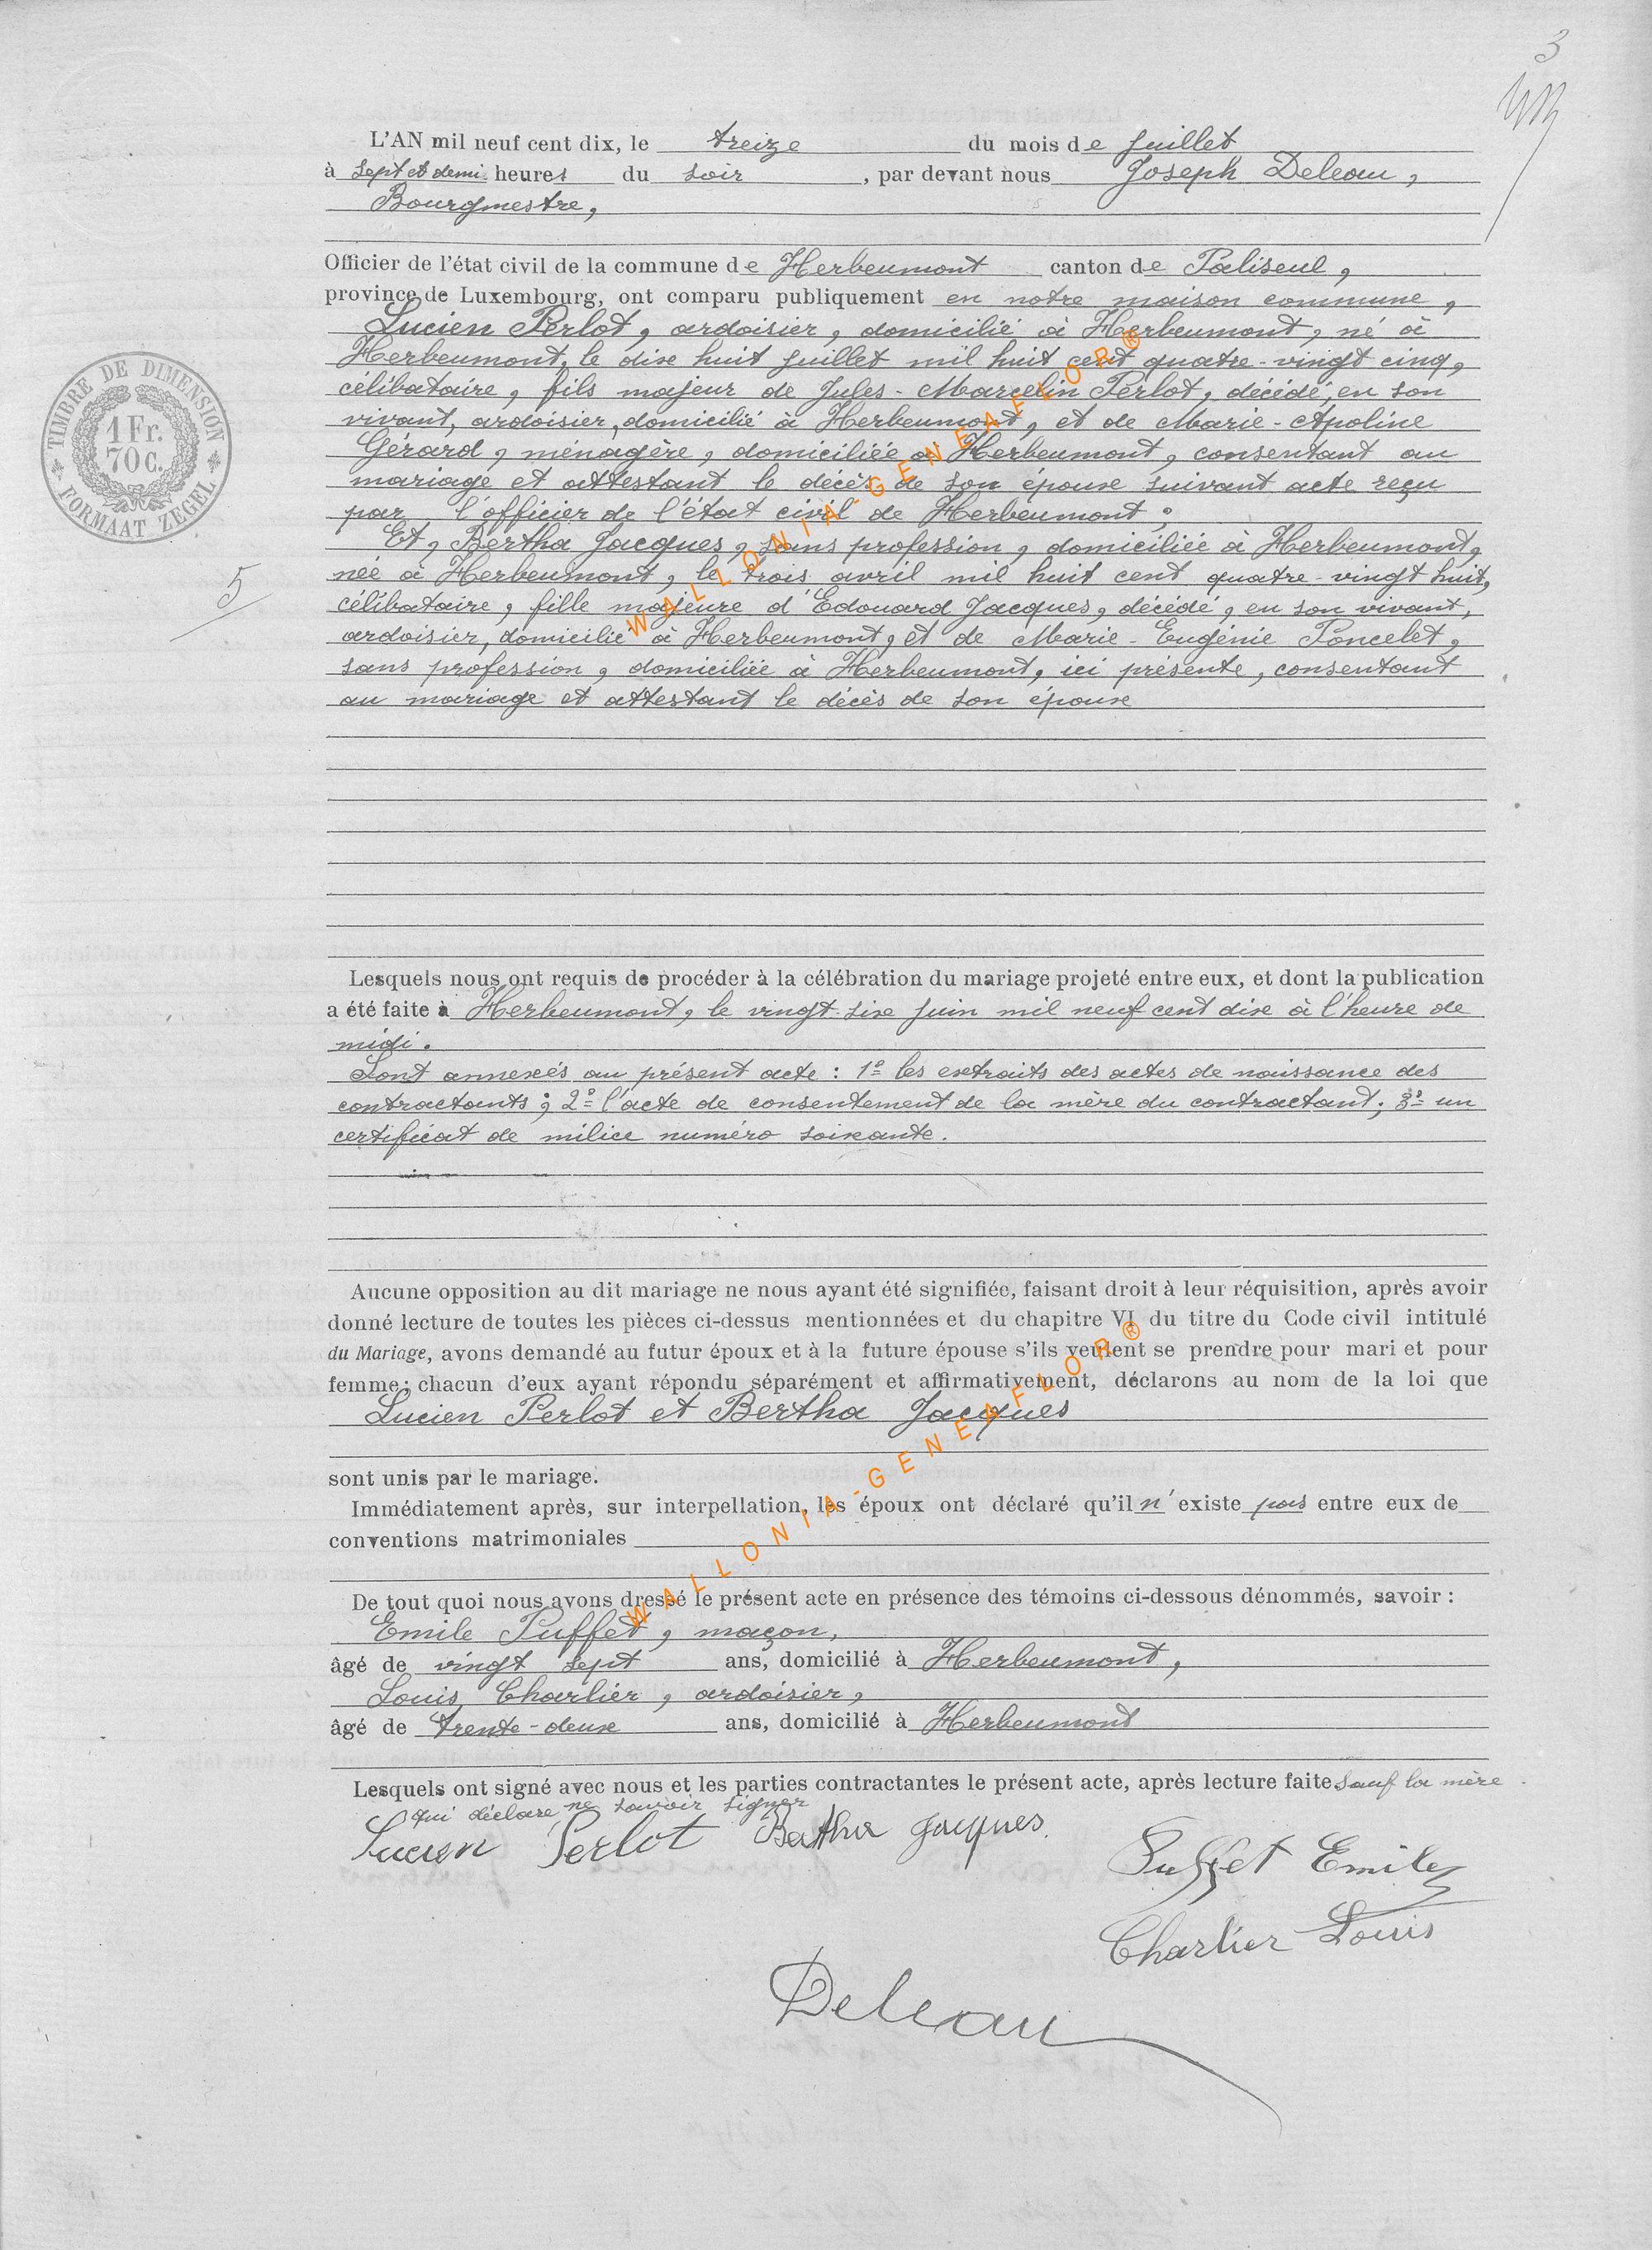 3
L'AN mil neuf cent dix, le treize du mois de juillet
à sept et demi heures du soir, par devant nous Joseph Deleau,
Bourgmestre,
Officier de l'état civil de la commune de Herbeumont canton de Paliseul,
province de Luxembourg, ont comparu publiquement en notre maison commune,
Lucien Perlot, ardoisier, domicilié à Herbeumont, né à
Herbeumont, le dix huit juillet mil huit cent quatre-vingt cinq,
célibataire, fils majeur de Jules-Marcelin Perlot, décédé, en son
vivant, ardoisier, domicilié à Herbeumont, et de Marie-Apoline
Gérard, ménagère, domiciliée à Herbeumont, consentant au
mariage et attestant le décès de son épouse suivant acte reçu
par l'officier de l'état civil de Herbeumont;
Et, Bertha Jacques, sans profession, domiciliée à Herbeumont,
née à Herbeumont, le trois avril mil huit cent quatre-vingt huit,
célibataire, fille majeure d'Edouard Jacques, décédé, en son vivant,
ardoisier, domicilié à Herbeumont, et de Marie-Eugénie Poncelet,
sans profession, domiciliée à Herbeumont, ici présente, consentant
au mariage et attestant le décès de son épouse
TIMBRE DE DIMENSION
1 Fr.
70 c.
FORMAAT ZEGEL
5
WALLONIA-GENEAFLOR®
Lesquels nous ont requis de procéder à la célébration du mariage projeté entre eux, et dont la publication
a été faite à Herbeumont, le vingt-six juin mil neuf cent dix à l'heure de
midi.
Sont annexés au présent acte : 1° les extraits des actes de naissance des
contractants; 2° l'acte de consentement de la mère du contractant; 3° un
certificat de milice numéro soixante.
Aucune opposition au dit mariage ne nous ayant été signifiée, faisant droit à leur réquisition, après avoir
donné lecture de toutes les pièces ci-dessus mentionnées et du chapitre VI du titre du Code civil intitulé
du Mariage, avons demandé au futur époux et à la future épouse s'ils veulent se prendre pour mari et pour
femme; chacun d'eux ayant répondu séparément et affirmativement, déclarons au nom de la loi que
Lucien Perlot et Bertha Jacques
sont unis par le mariage.
Immédiatement après, sur interpellation, les époux ont déclaré qu'il n'existe pas entre eux de
conventions matrimoniales
WALLONIA-GENEAFLOR®
De tout quoi nous avons dressé le présent acte en présence des témoins ci-dessous dénommés, savoir :
Emile Puffet, maçon,
âgé de vingt sept ans, domicilié à Herbeumont,
Louis Charlier, ardoisier,
âgé de trente-deux ans, domicilié à Herbeumont
Lesquels ont signé avec nous et les parties contractantes le présent acte, après lecture faite sauf la mère
qui déclare ne savoir signer
Lucien Perlot Bertha Jacques
Puffet Emile
Charlier Louis
Deleau